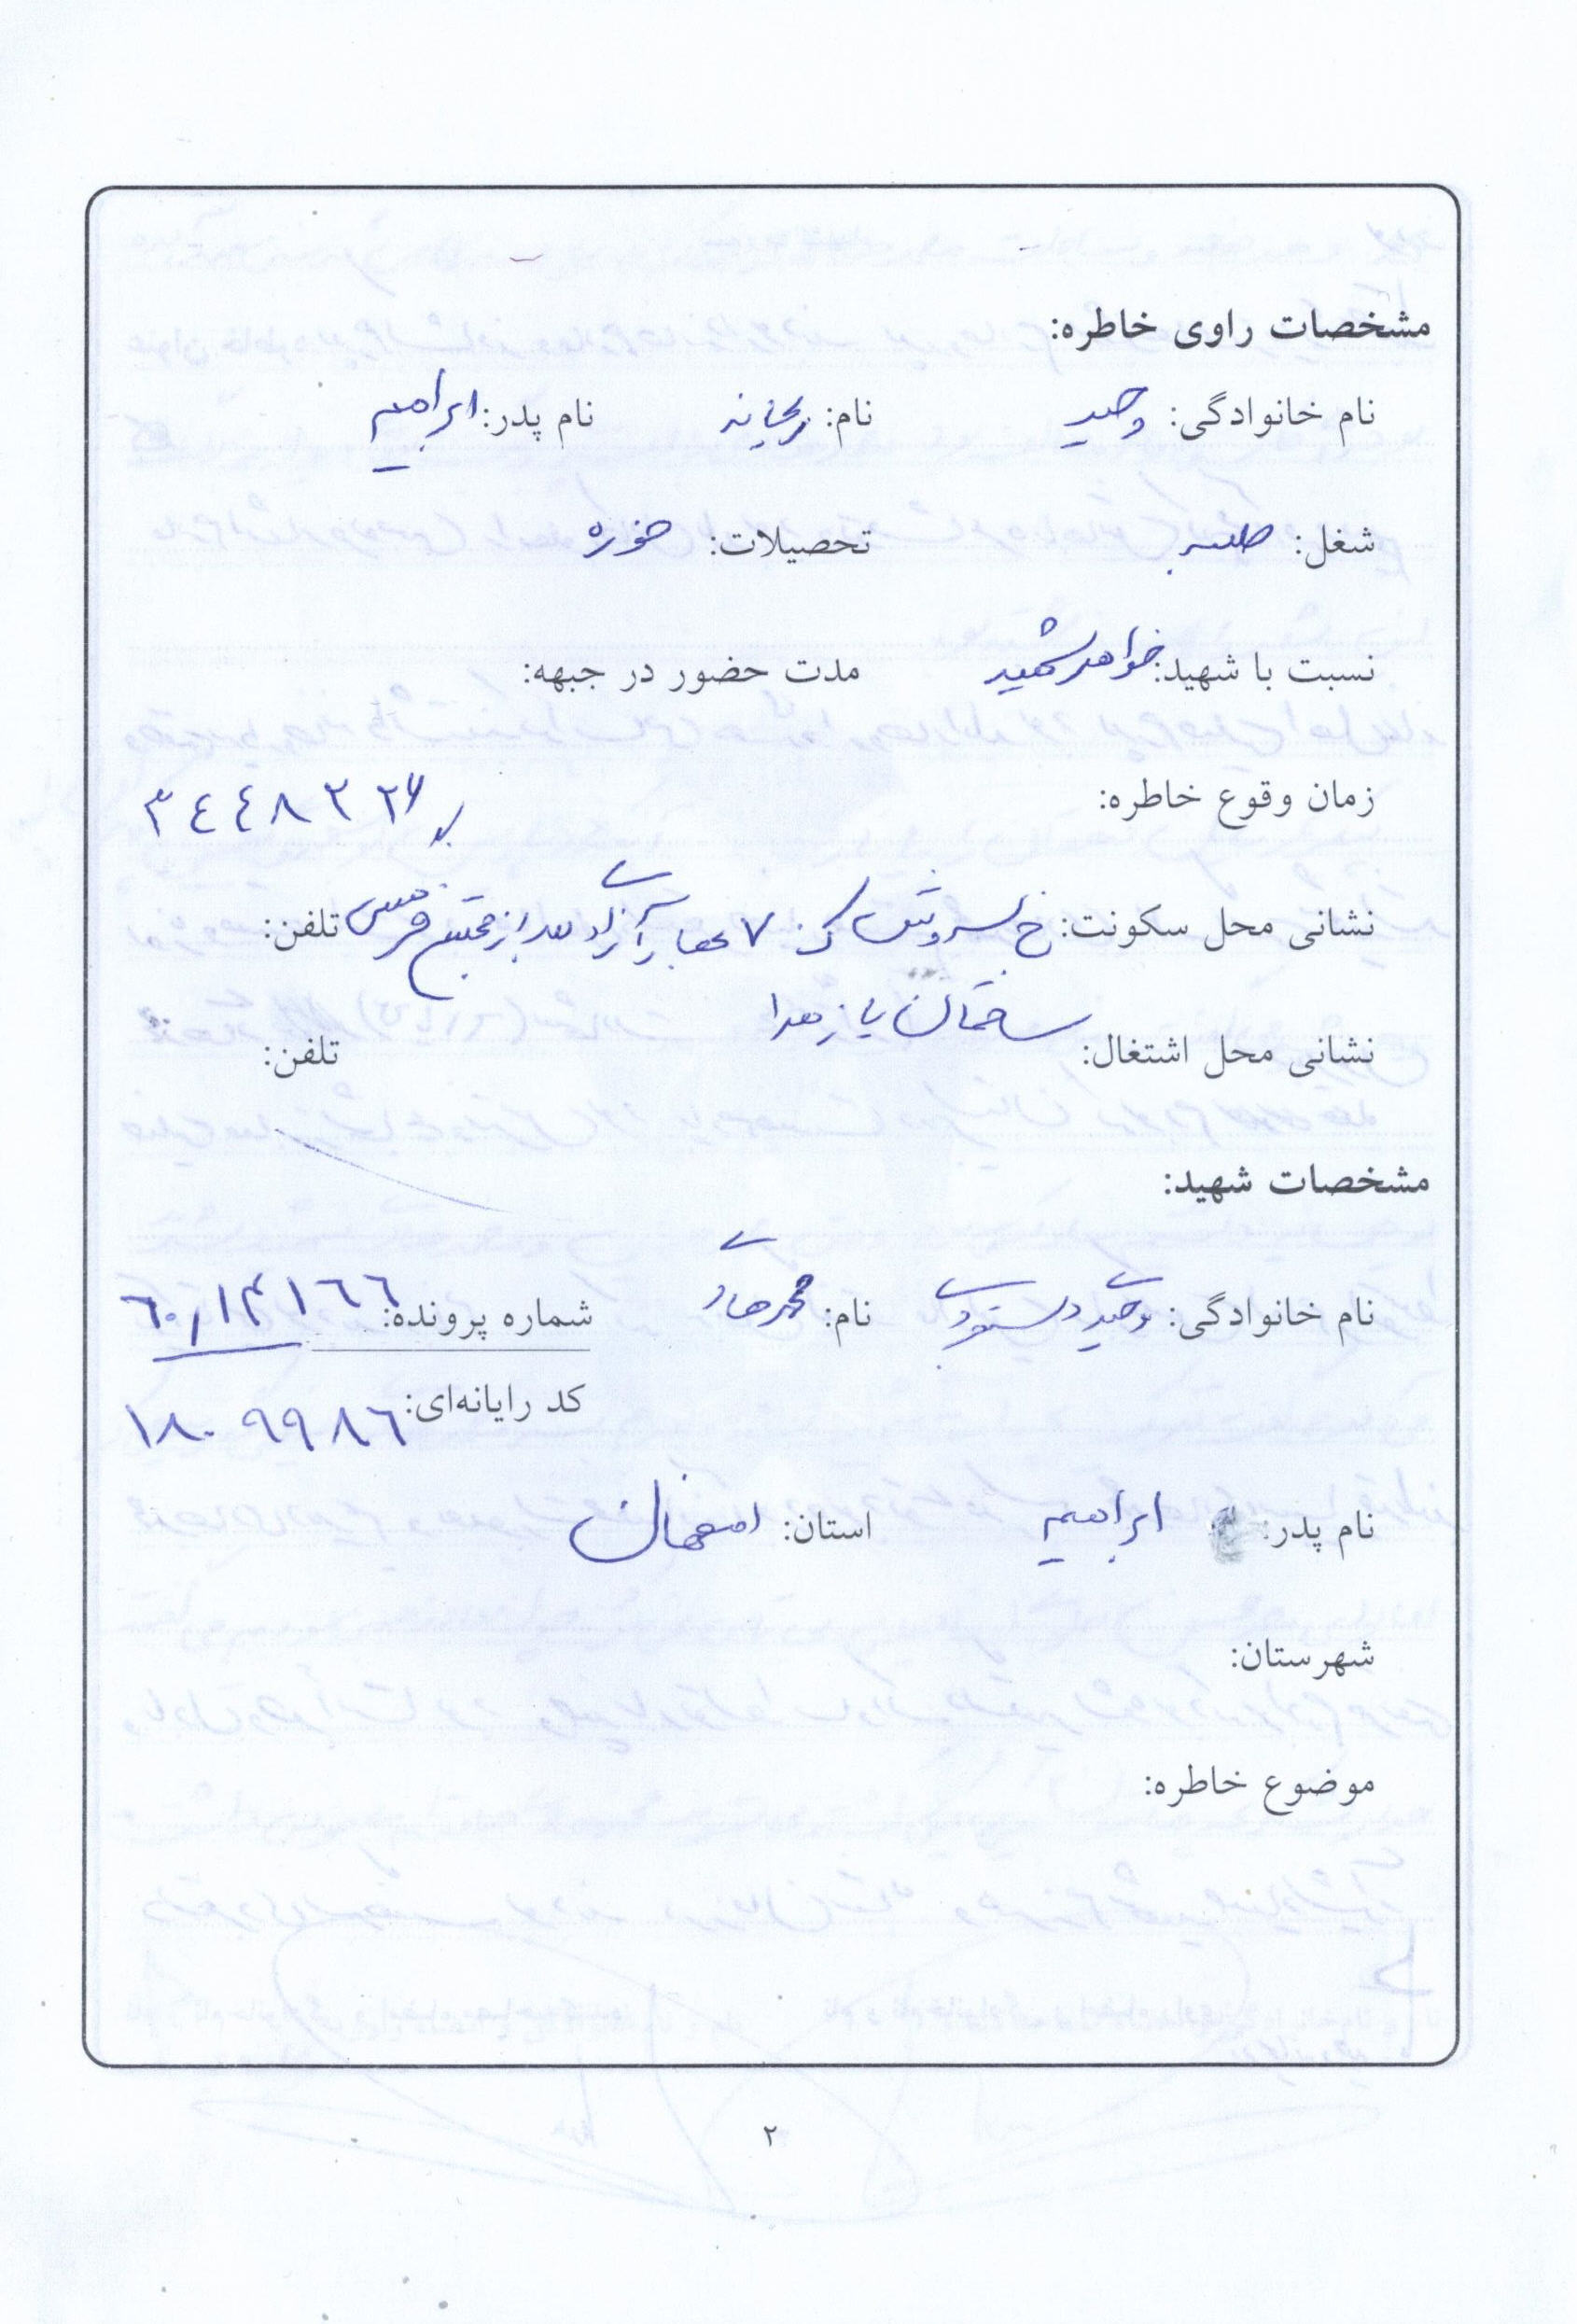 مشخصات راوی خاطره:
نام خانوادگی: وحید نام: ریحانه نام پدر: ابراهیم
شغل: طلبه تحصیلات: حوزه
نسبت با شهید: خواهر شهید مدت حضور در جبهه:
زمان وقوع خاطره:
۳۴۴۸۳۲۶
نشانی محل سکونت: خ سروش ک ۷ بعد از مجتمع تلفن:
ساختمان یا زهرا
نشانی محل اشتغال: تلفن:
مشخصات شهید:
نام خانوادگی: وحید دستجردی نام: محمدهادی شماره پرونده: ۶۰/۱۴۱۶۶
کد رایانه‌ای: ۱۸۰۹۹۸۶
نام پدر: ابراهیم استان: اصفهان
شهرستان:
موضوع خاطره:
۲